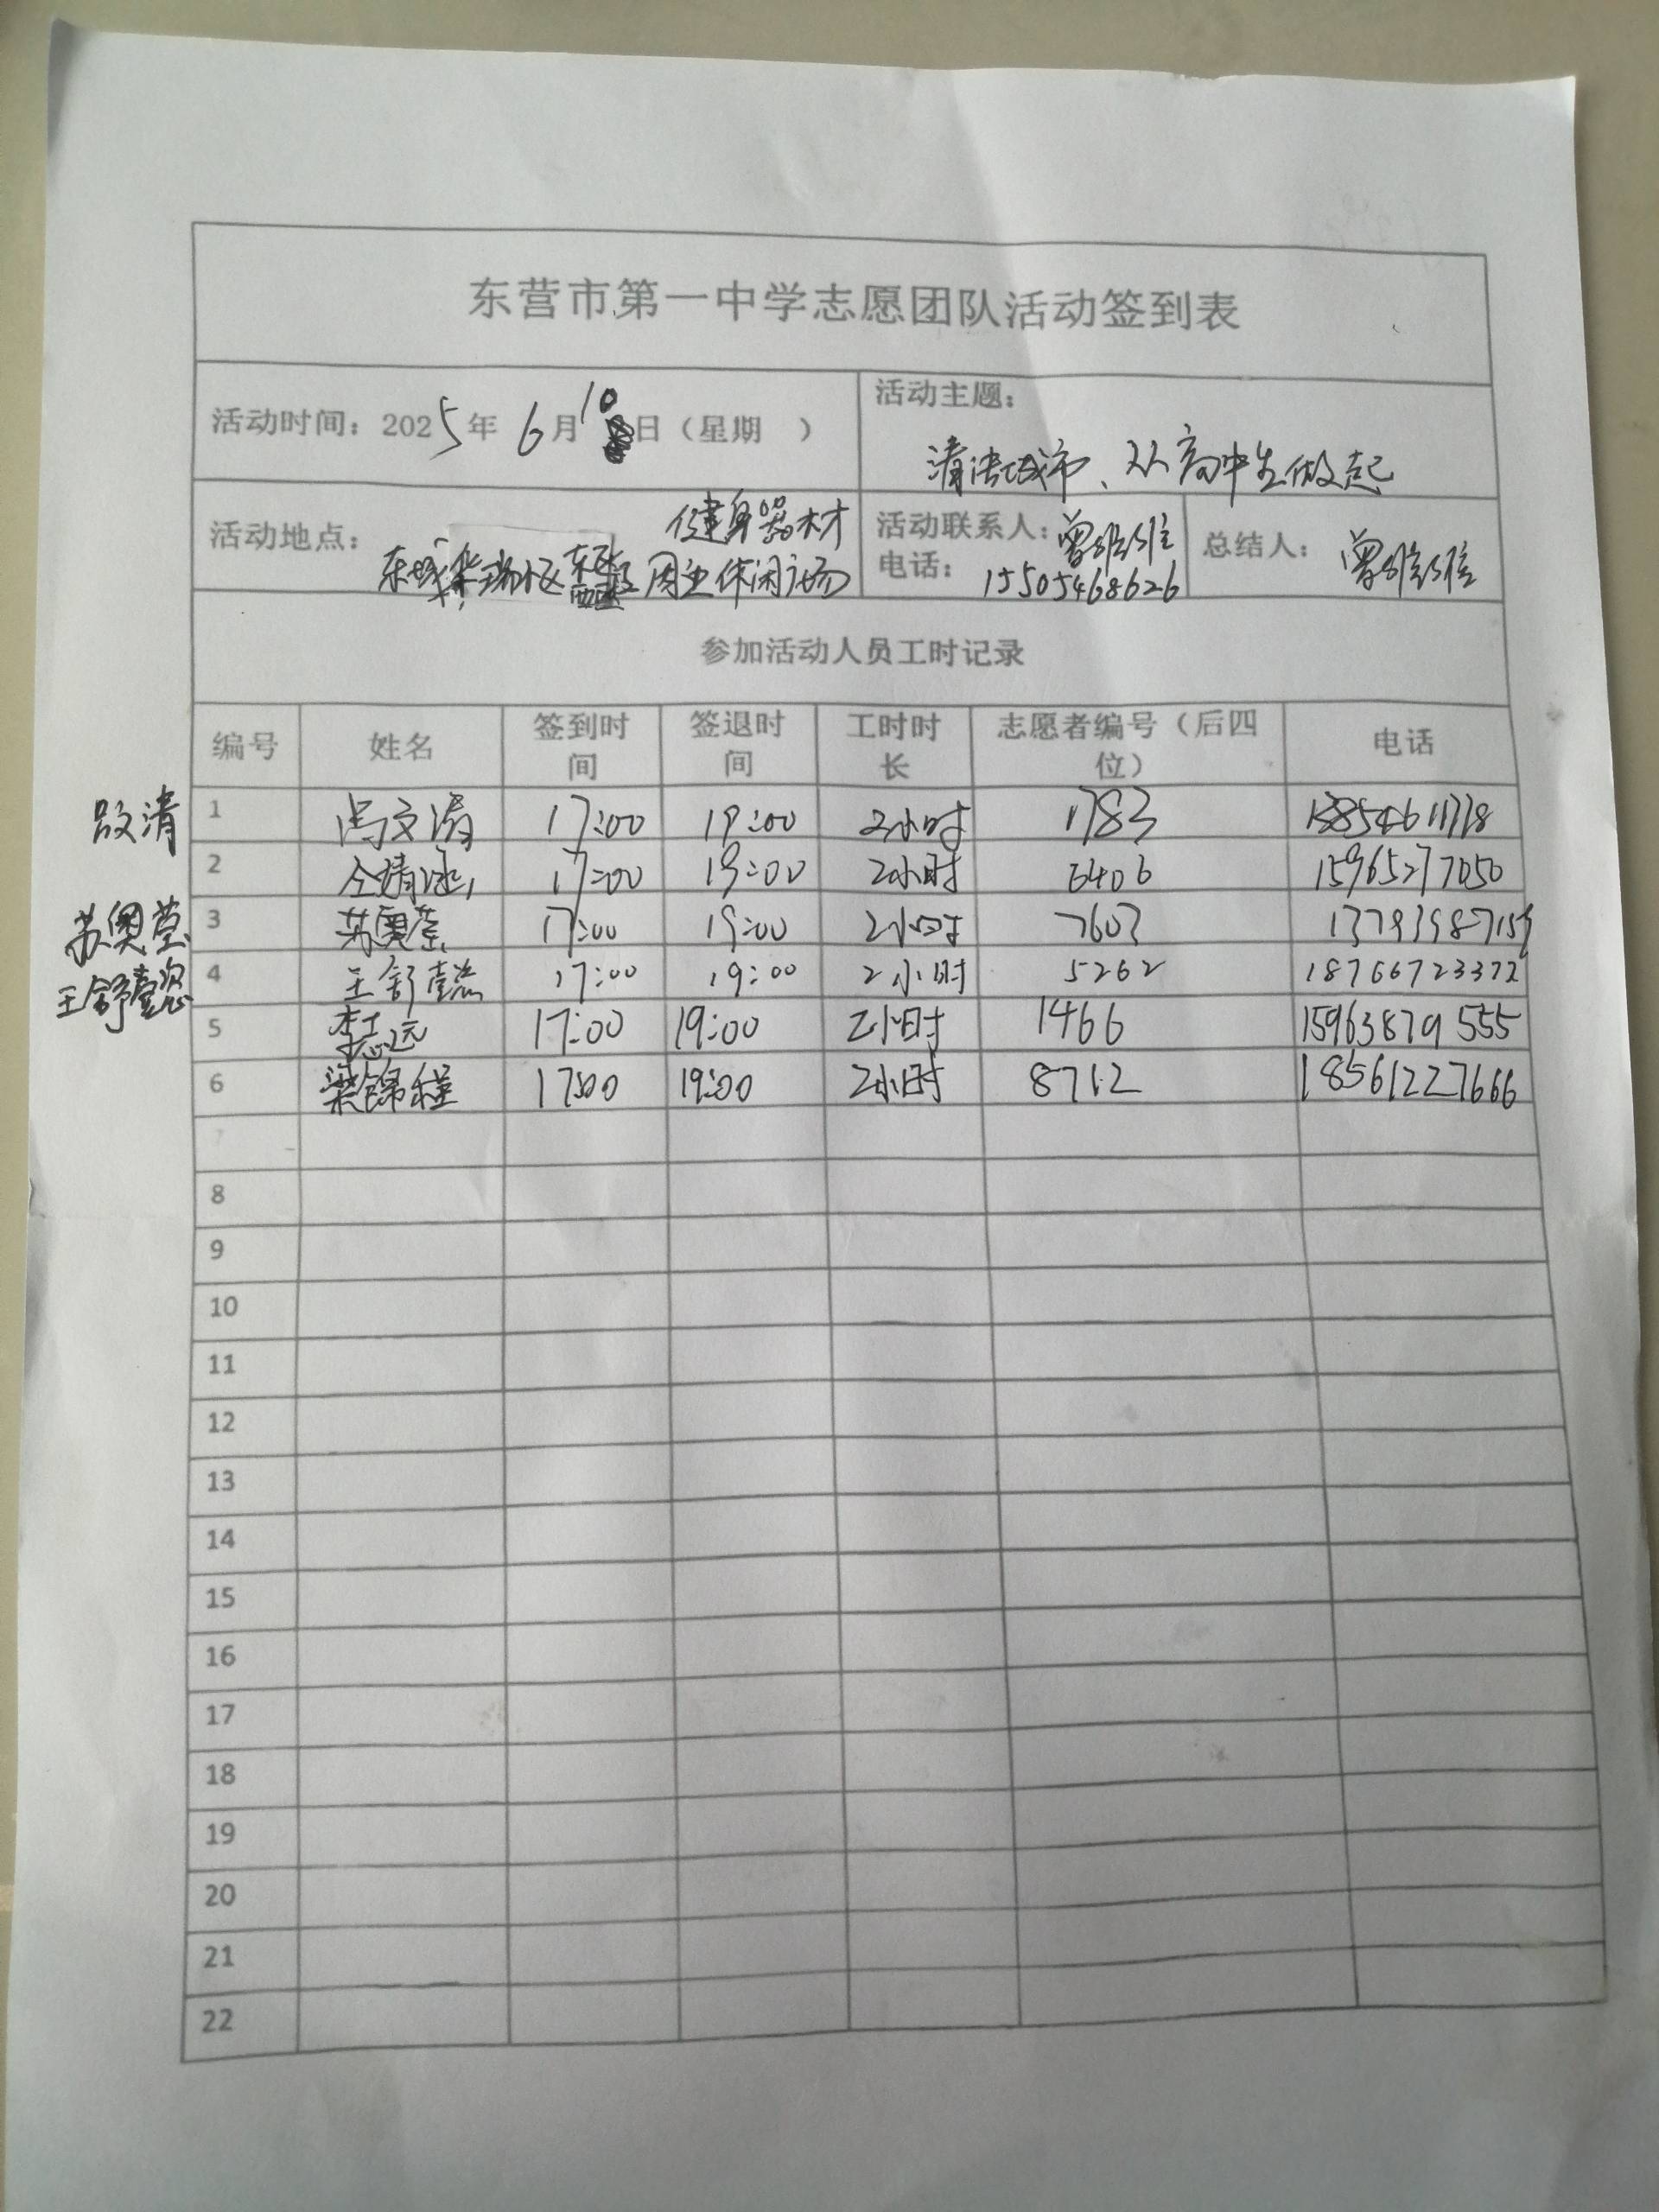 东营市第一中学志愿团队活动签到表
活动时间：2025年 6月10日（星期 ）
活动主题：
清洁城市、从高中生做起
活动地点：
健身器材
东城 周边休闲广场
活动联系人：曾维维
电话：15505468626
总结人：曾维维
参加活动人员工时记录
编号 姓名 签到时间 签退时间 工时时长 志愿者编号（后四位） 电话
1 17:00 19:00 2小时 1783
2 17:00 19:00 2小时 6406 15965277050
苏奥莹 3 苏奥莹 17:00 19:00 2小时 7603
王舒懿 4 王舒懿 17:00 19:00 2小时 5262 18766723372
5 李志远 17:00 19:00 2小时 1466 15963879555
6 梁锦程 17:00 19:00 2小时 8712 18561227666
7
8
9
10
11
12
13
14
15
16
17
18
19
20
21
22